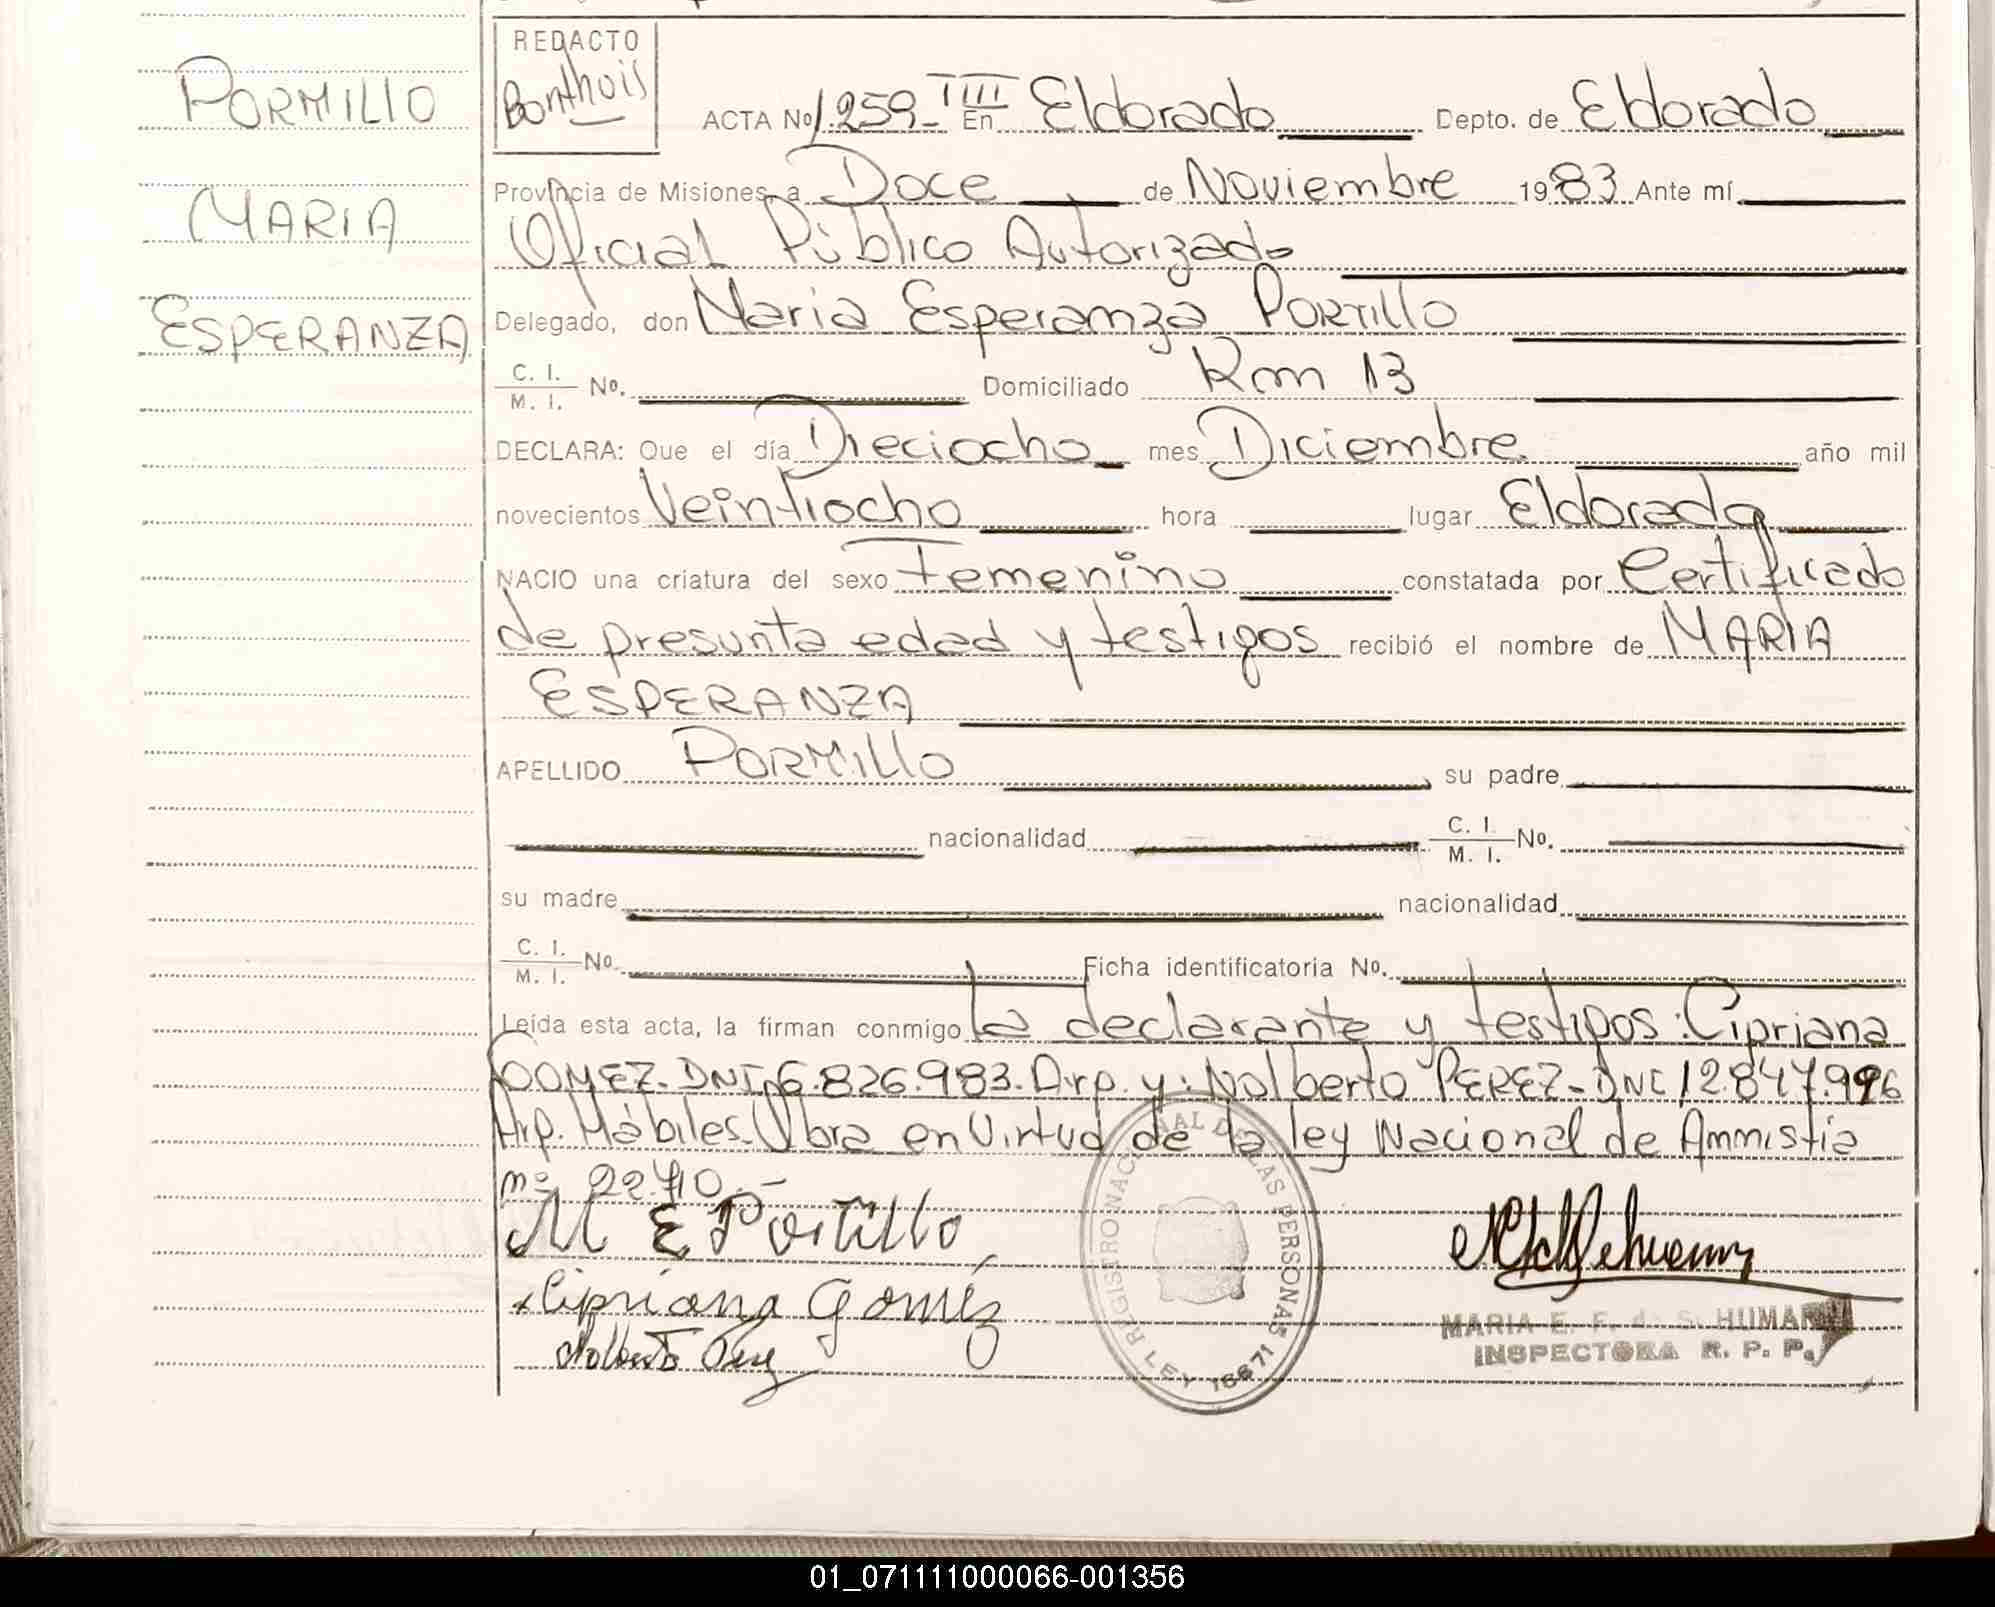 REDACTO
Bonthuis
PORMILLO
MARIA
ESPERANZA
ACTA Nº 1.259- TIII En Eldorado Depto. de Eldorado
Provincia de Misiones, a Doce de Noviembre 1983 Ante mí
Oficial Público Autorizado
Delegado, don Maria Esperanza PORTILLO
C. I. M. I. Nº. Domiciliado Km 13
DECLARA: Que el día Dieciocho mes Diciembre año mil
novecientos Veintiocho hora lugar Eldorado
NACIO una criatura del sexo Femenino constatada por Certificado
de presunta edad y testigos recibió el nombre de MARIA
ESPERANZA
APELLIDO PORMILLO, su padre
nacionalidad C. I. M. I. Nº.
su madre nacionalidad
C. I. M. I. Nº. Ficha identificatoria Nº.
Leída esta acta, la firman conmigo la declarante y testigos: Cipriana
GOMEZ. DNI. 6.826.983. Arg. y. Nolberto PEREZ- DNI 12.847.996
Arg. Hábiles. Obra en Virtud de la ley Nacional de Amnistía
nº 22410.-
M E Portillo
Cipriana Gomez
Nolberto Perez
REGISTRO NACIONAL DE LAS PERSONAS
LEY 16671
MARIA E. F. de S. HUMA
INSPECTORA R. P. P.
01_071111000066-001356